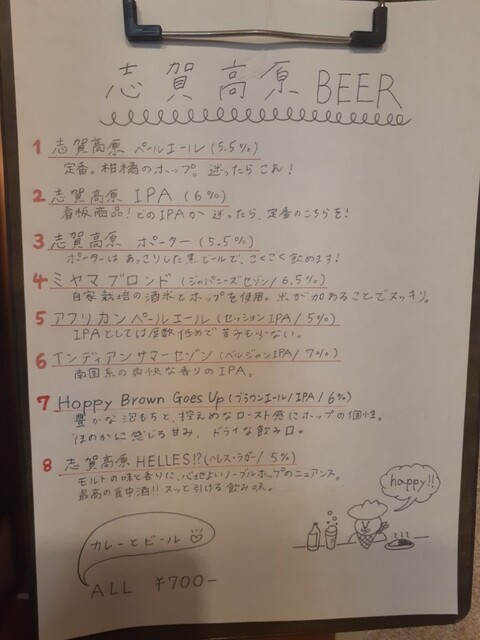 志賀高原 BEER
1 志賀高原 ペールエール (5.5%)
定番。柑橘のホップ。迷ったらこれ！
2 志賀高原 IPA (6%)
看板商品！どのIPAか迷ったら、定番のこちらを！
3 志賀高原 ポーター (5.5%)
ポーターはあっさりした黒ビールで、ごくごく飲めます！
4 ミヤマブロンド (ジャパニーズセゾン/6.5%)
自家栽培の酒米とホップを使用。米が加わることでスッキリ。
5 アフリカンペールエール (セッションIPA/5%)
IPAとしては度数低めで苦みも少ない。
6 インディアンサマーセゾン (ベルジャンIPA/7%)
南国系の爽快な香りのIPA。
7 Hoppy Brown Goes Up (ブラウンエール/IPA/6%)
豊かな泡もちと、控えめなロースト感にホップの個性。
ほのかに感じる甘み、ドライな飲み口。
8 志賀高原 HELLES!? (ヘレス・ラガー/5%)
モルトの味と香りに、心地よいノーブルホップのニュアンス。
最高の食中酒!! スッと引ける飲み味。
happy!!
カレーとビール
ALL ¥700-